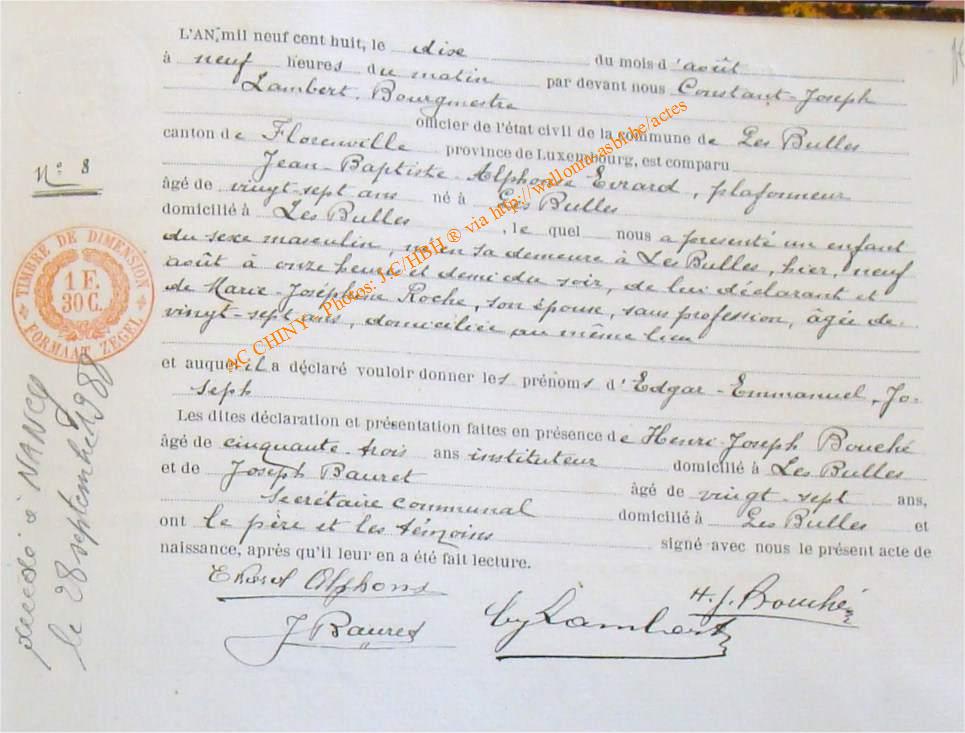 L'AN mil neuf cent huit, le dixe du mois d'août
à neuf heures du matin par devant nous Constant-Joseph
Lambert, Bourgmestre
officier de l'état civil de la commune de Les Bulles
canton de Florenville province de Luxembourg, est comparu
Jean-Baptiste-Alphonse Evrard, plafonneur
âgé de vingt-sept ans né à Les Bulles
domicilié à Les Bulles, le quel nous a presenté un enfant
du sexe masculin, né en sa demeure à Les Bulles, hier, neuf
août à onze heures et demi du soir, de lui déclarant et
de Marie-Joséphine Roche, son épouse, sans profession, âgée de
vingt-sept ans, domiciliée au même lieu
et auquel il a déclaré vouloir donner les prénoms d'Edgar-Emmanuel, Jo-
seph
Les dites déclaration et présentation faites en présence de Henri-Joseph Bouché
âgé de cinquante-trois ans instituteur domicilié à Les Bulles
et de Joseph Bauret âgé de vingt-sept ans,
secrétaire communal domicilié à Les Bulles et
ont le père et les témoins signé avec nous le présent acte de
naissance, après qu'il leur en a été fait lecture.
Evrard Alphons
H. J. Bouché
J Bauret
Lambert
N° 8
TIMBRE DE DIMENSION
1 F.
30 C.
FORMAAT ZEGEL
décédé à NANCY
le 28 septembre 1988
AC CHINY - Photos: J.C/HBH ® via http://wallonia-asbl.be/actes